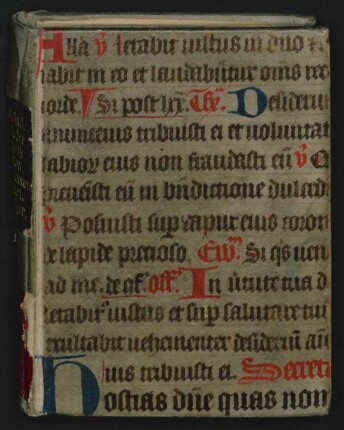 Alla ℣ letabit᷑ iustus in dño
habit in eo et laudabūtur oṁs rec
corde Si post lxx. Desideriu
anime eius tribuisti ei et uoluntat
labioꝝ eius non fraudasti eū ℣
preuēisti eū in bñdictione dulced
℣ Posuisti sup caput eius coron
de lapide precioso. Si qͥs uen
ad me. de Off. In uirtute tua d
letabit᷑ iustus et sup salutare tuū
exultabit uehementer desideriū
eius tribuisti ei. Secret
Hostias dñe quas nom